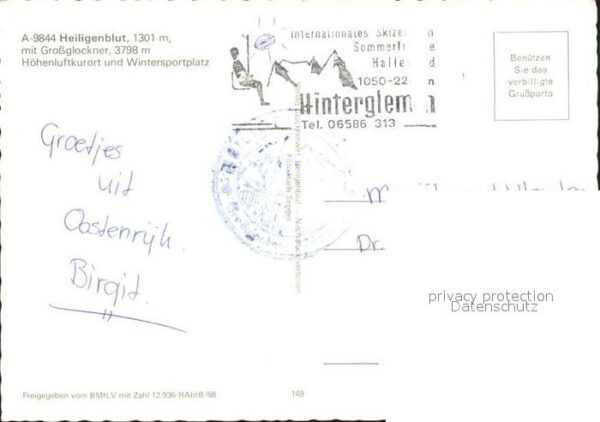 A-9844 Heiligenblut, 1301 m,
mit Großglockner, 3798 m
Höhenluftkurort und Wintersportplatz
Internationales
Sommerfr
Halle
1050-22
Hinterglem
Tel. 06586 313
Benützen
Sie das
verbilligte
Grußporto
Groetjes
uit
Oostenrijk.
Birgit.
Dr.
privacy protection
Datenschutz
Freigegeben vom BMfLV mit Zahl 12.936 RAbtB/68
149